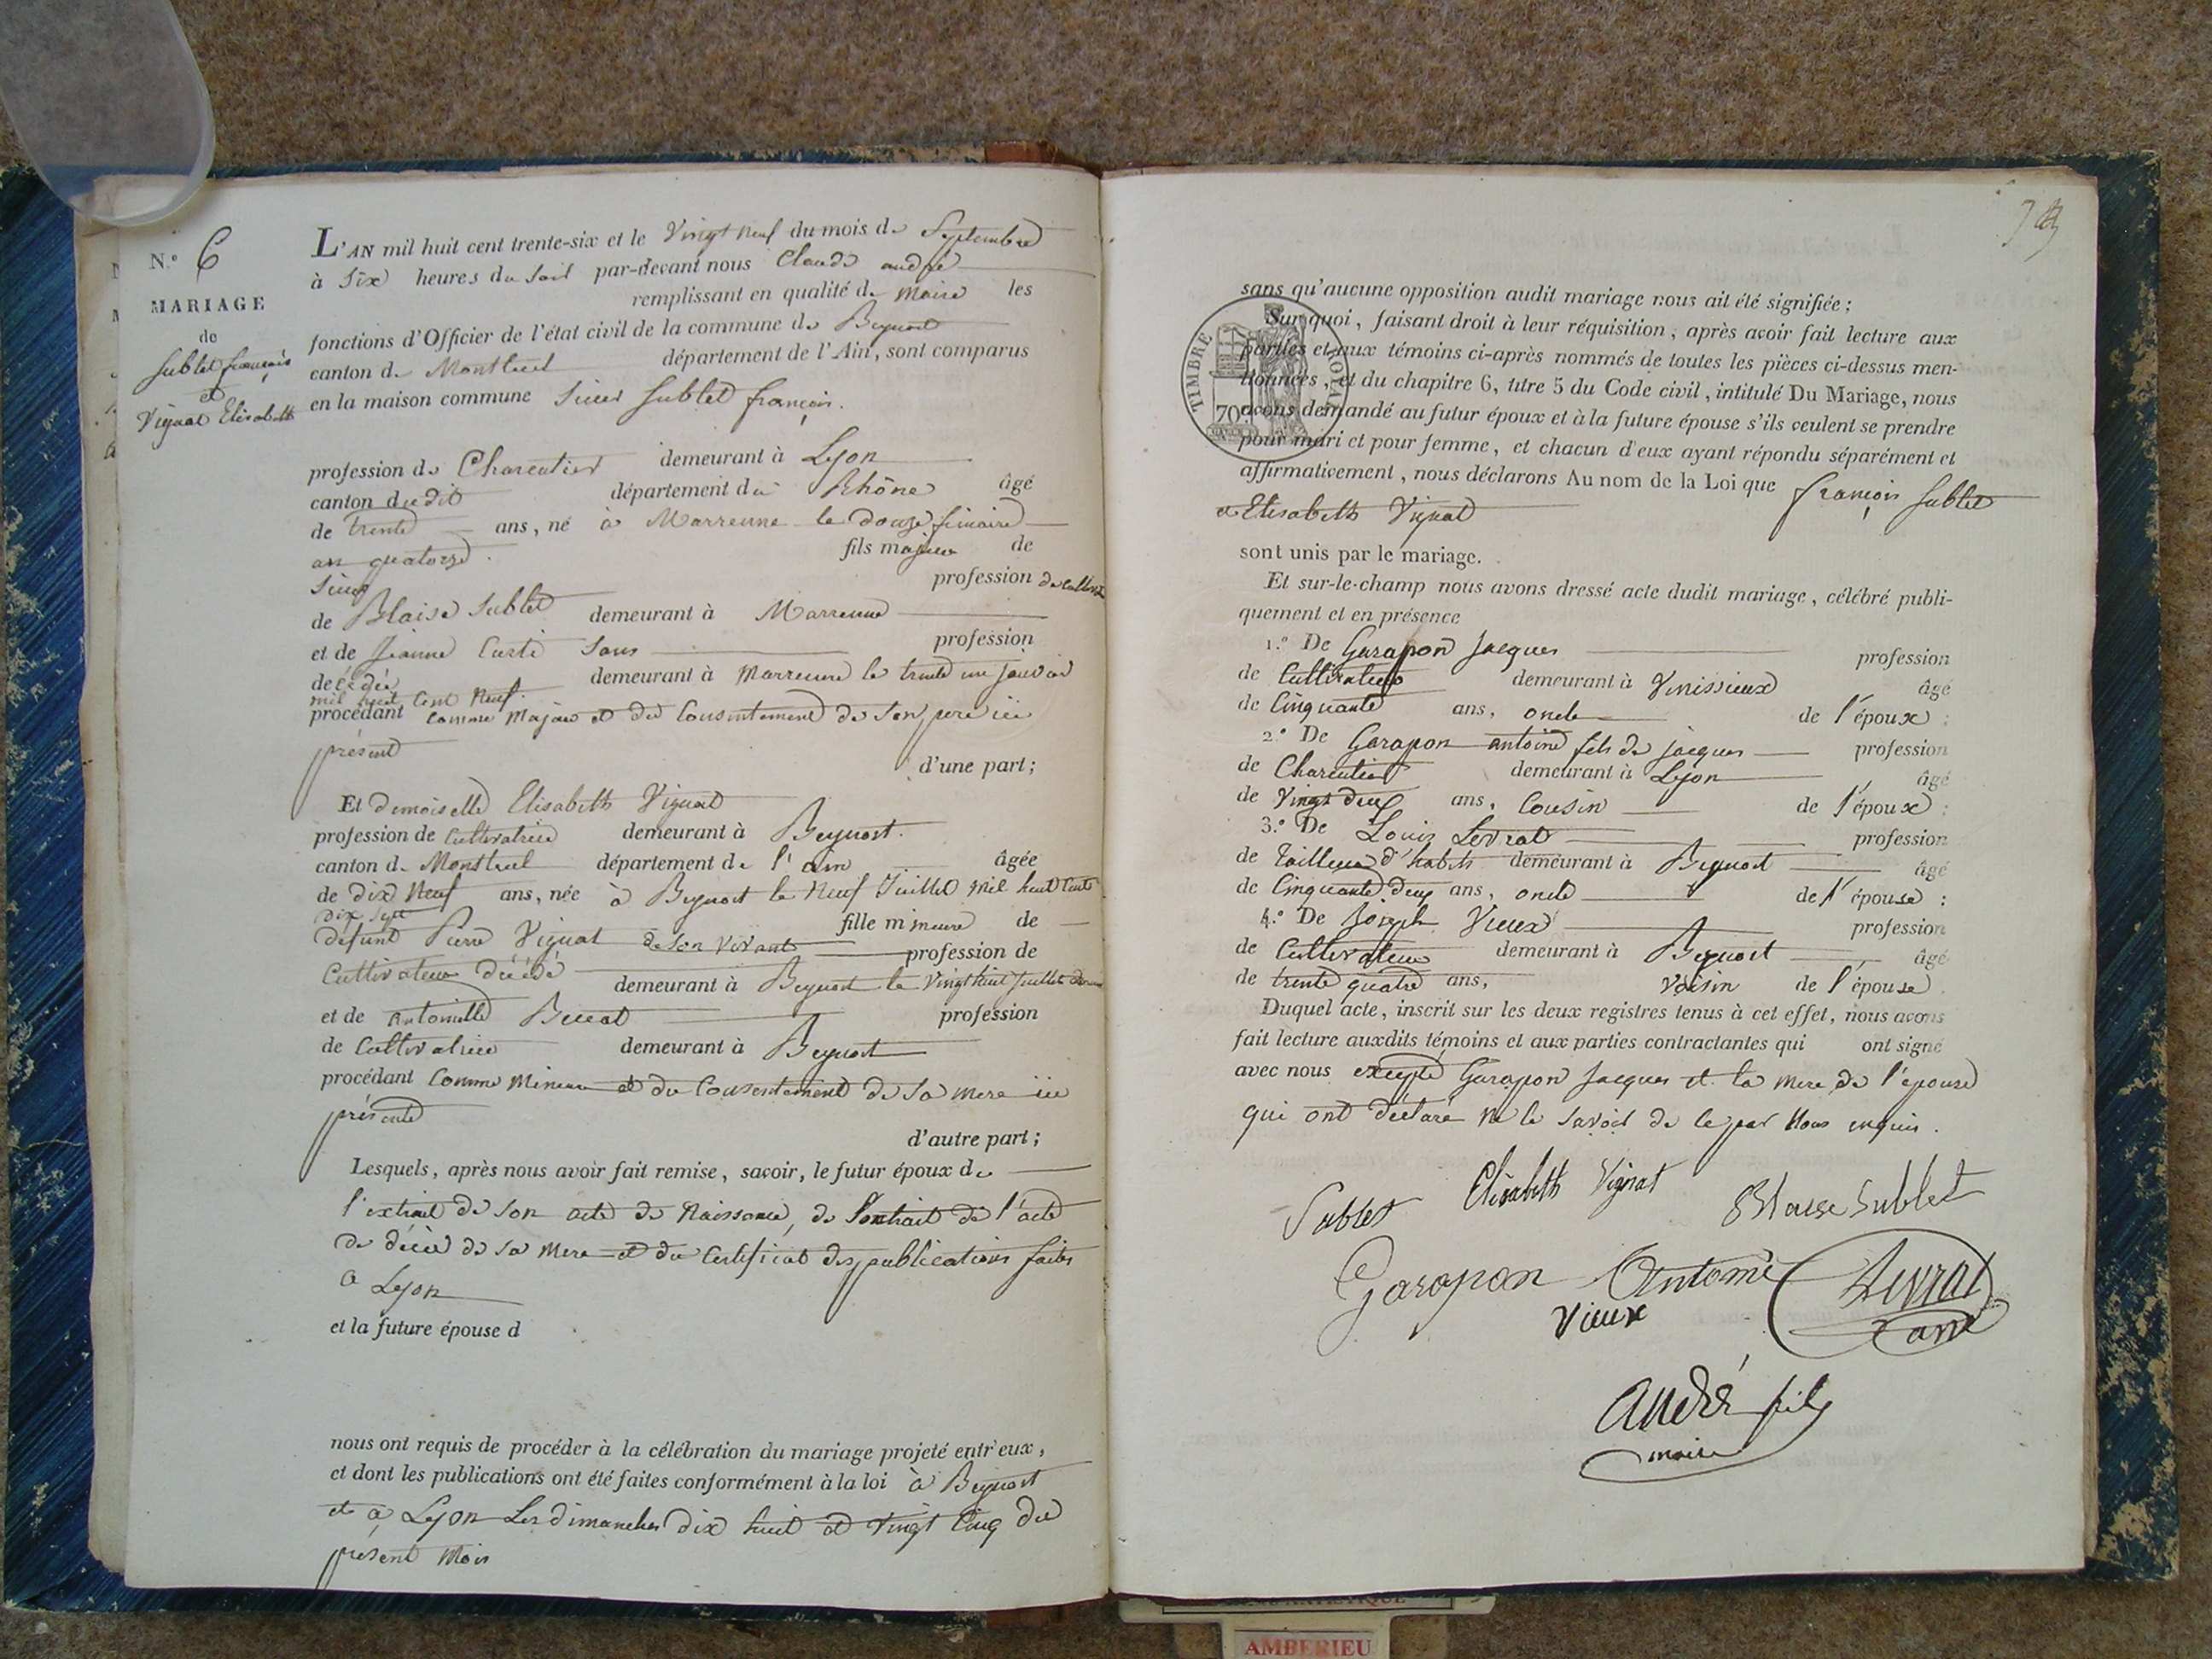 N.° 6
MARIAGE
de
Sublet françois
et
Vignat Elisabeth
L'AN mil huit cent trente-six et le Vingt neuf du mois de Septembre
à Six heures du soir par-devant nous Claude andré
remplissant en qualité de Maire les
fonctions d'Officier de l'état civil de la commune de Beynost
canton de Montluel département de l'Ain, sont comparus
en la maison commune Sieur Sublet françois.
profession de Charcutier demeurant à Lyon
canton dudit département du Rhône âgé
de trente ans, né à Marrenne le douze frimaire
an quatorze. fils majeur de
Sieur profession de
de Blaise Sublet demeurant à Marrenne
et de Jeanne Sans profession
décédée demeurant à Marrenne le trente un janvier
mil huit Cent Neuf.
procédant Comme Majeur et du Consentement de son pere ici
présent
d'une part;
Et demoiselle Elisabeth Vignat
profession de Cultivatrice demeurant à Beynost.
canton de Montluel département de l'ain âgée
de dix Neuf ans, née à Beynost le Neuf Juillet mil huit Cent
dix sept fille mineure de
défunt Pierre Vignat de son vivant profession de
Cultivateur décédé demeurant à Beynost le Vingt huit Juillet
et de Antoinette profession
de Cultivatrice demeurant à Beynost
procédant Comme Mineure et du Consentement de Sa mere ici
présente
d'autre part;
Lesquels, après nous avoir fait remise, savoir, le futur époux de
l'extrait de son acte de Naissance, de l'extrait de l'acte
de décès de sa mere et du Certificat des publications faites
a Lyon
et la future épouse d
nous ont requis de procéder à la célébration du mariage projeté entr'eux,
et dont les publications ont été faites conformément à la loi à Beynost
et a Lyon Les dimanches dix huit et Vingt Cinq du
présent Mois
sans qu'aucune opposition audit mariage nous ait été signifiée;
Sur quoi, faisant droit à leur réquisition, après avoir fait lecture aux
parties et aux témoins ci-après nommés de toutes les pièces ci-dessus men-
tionnées, et du chapitre 6, titre 5 du Code civil, intitulé Du Mariage, nous
avons demandé au futur époux et à la future épouse s'ils veulent se prendre
pour mari et pour femme, et chacun d'eux ayant répondu séparément et
affirmativement, nous déclarons Au nom de la Loi que françois Sublet
et Elisabeth Vignat
sont unis par le mariage.
TIMBRE ROYAL
70
Et sur-le-champ nous avons dressé acte dudit mariage, célébré publi-
quement et en présence
1.° De Garapon Jacques profession
de Cultivateur demeurant à Venissieux âgé
de Cinquante ans, oncle de l'époux;
2.° De Garapon antoine fils de jacques profession
de Charcutier demeurant à Lyon âgé
de Vingt deux ans, Cousin de l'époux:
3.° De Louis Levrat profession
de Tailleur d'habits demeurant à Beynost âgé
de Cinquante deux ans, oncle de l'épouse:
4.° De Joseph Vieux profession
de Cultivateur demeurant à Beynost âgé
de trente quatre ans, Voisin de l'épouse.
Duquel acte, inscrit sur les deux registres tenus à cet effet, nous avons
fait lecture auxdits témoins et aux parties contractantes qui ont signé
avec nous excepté Garapon Jacques et la mere de l'épouse
qui ont déclaré ne le savoir de ce par Nous enquis.
Sublet Elisabeth Vignat Blaise Sublet
Garapon Antoine Levrat
Vieux
André fils
maire
AMBERIEU